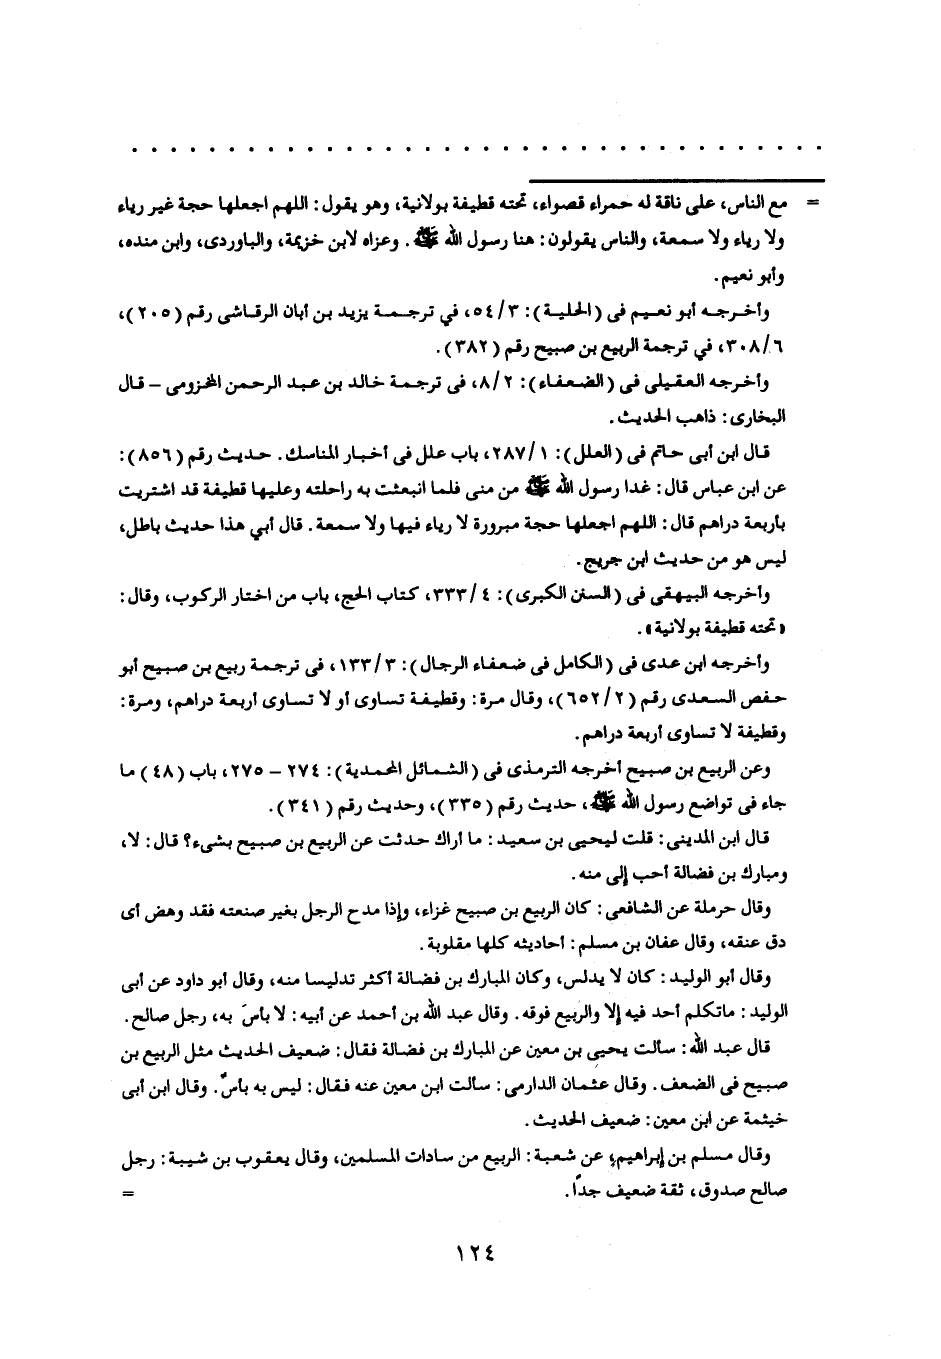 = مع الناس، على ناقة له حمراء قصواء، تحته قطيفة بولانية، وهو يقول: اللهم اجعلها حجة غير رياء
ولا رياء ولا سمعة، والناس يقولون: هنا رسول الله ﷺ. وعزاه لابن خزيمة، والباوردى، وابن منده،
وأبو نعيم.
وأخرجه أبو نعيم فى (الحلية): ٣/ ٥٤، في ترجمة يزيد بن أبان الرقاشى رقم (٢٠٥)،
٦/ ٣٠٨، في ترجمة الربيع بن صبيح رقم (٣٨٢).
وأخرجه العقيلى فى (الضعفاء): ٢/ ٨، فى ترجمة خالد بن عبد الرحمن المخزومى – قال
البخارى: ذاهب الحديث.
قال ابن أبى حاتم فى (العلل): ١/ ٢٨٧، باب علل فى أخبار المناسك. حديث رقم (٨٥٦):
عن ابن عباس قال: غدا رسول الله ﷺ من منى فلما انبعثت به راحلته وعليها قطيفة قد اشتريت
بأربعة دراهم قال: اللهم اجعلها حجة مبرورة لا رياء فيها ولا سمعة. قال أبي هذا حديث باطل،
ليس هو من حديث ابن جريج.
وأخرجه البيهقى فى (السنن الكبرى): ٤/ ٣٣٣، كتاب الحج، باب من اختار الركوب، وقال:
«تحته قطيفة بولانية».
وأخرجه ابن عدى فى (الكامل فى ضعفاء الرجال): ٣/ ١٣٣، فى ترجمة ربيع بن صبيح أبو
حفص السعدى رقم (٢/ ٦٥٢)، وقال مرة: وقطيفة تساوى أو لا تساوى أربعة دراهم، ومرة:
وقطيفة لا تساوى أربعة دراهم.
وعن الربيع بن صبيح أخرجه الترمذى فى (الشمائل المحمدية): ٢٧٤ – ٢٧٥، باب (٤٨) ما
جاء فى تواضع رسول الله ﷺ، حديث رقم (٣٣٥)، وحديث رقم (٣٤١).
قال ابن المدينى: قلت ليحيى بن سعيد: ما أراك حدثت عن الربيع بن صبيح بشىء؟ قال: لا،
ومبارك بن فضالة أحب إلى منه.
وقال حرملة عن الشافعى: كان الربيع بن صبيح غزاء، وإذا مدح الرجل بغير صنعته فقد وهض أى
دق عنقه، وقال عفان بن مسلم: أحاديثه كلها مقلوبة.
وقال أبو الوليد: كان لا يدلس، وكان المبارك بن فضالة أكثر تدليسا منه، وقال أبو داود عن أبى
الوليد: ماتكلم أحد فيه إلا والربيع فوقه. وقال عبد الله بن أحمد عن أبيه: لا بأسَ به، رجل صالح.
قال عبد الله: سألت يحيى بن معين عن المبارك بن فضالة فقال: ضعيف الحديث مثل الربيع بن
صبيح فى الضعف. وقال عثمان الدارمى: سألت ابن معين عنه فقال: ليس به بأسٌ. وقال ابن أبى
خيثمة عن ابن معين: ضعيف الحديث.
وقال مسلم بن إبراهيم، عن شعبة: الربيع من سادات المسلمين، وقال يعقوب بن شيبة: رجل
صالح صدوق، ثقة ضعيف جدًا. =
١٢٤